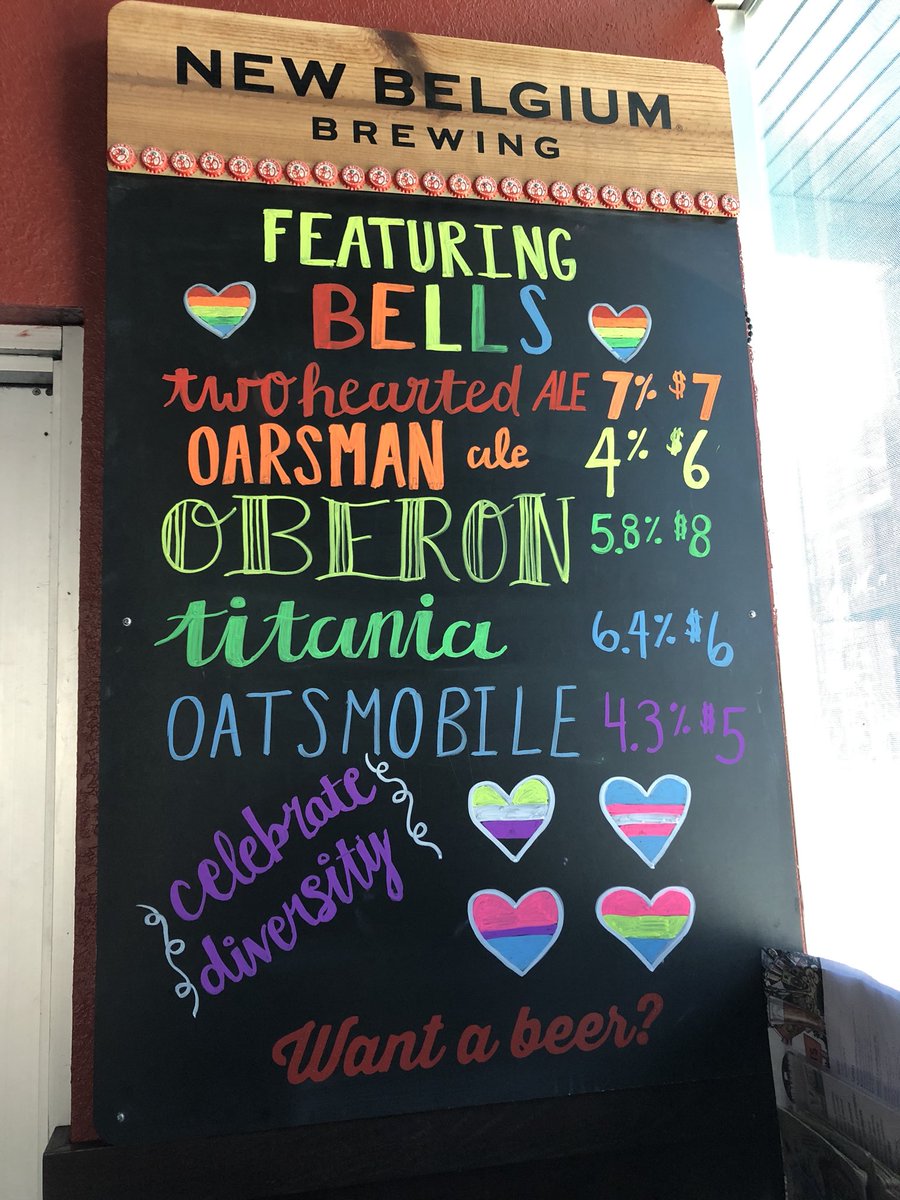 NEW BELGIUM
BREWING
FEATURING
BELLS
two hearted ALE 7% $7
OARSMAN ale 4% $6
OBERON 5.8% $8
titania 6.4% $6
OATSMOBILE 4.3% $5
celebrate
diversity
Want a beer?